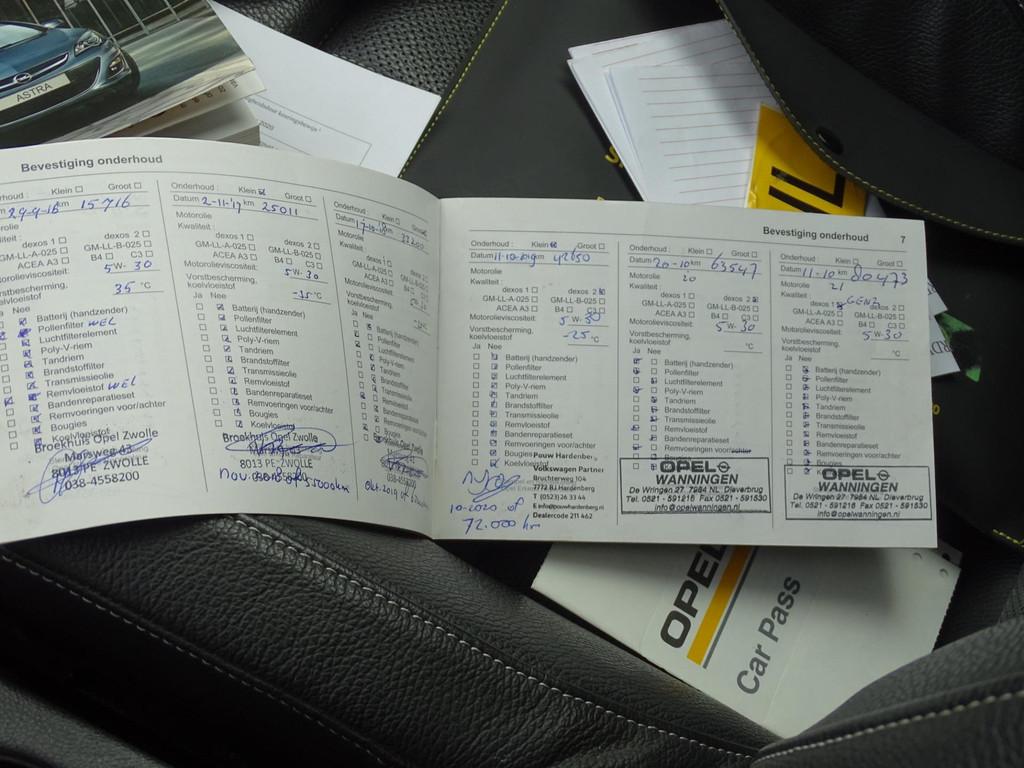 ASTRA
2020
Bevestiging onderhoud
rhoud : Klein ☐ Groot ☐
29-9-16 km 15716
Motorolie
dexos 1 ☐ dexos 2 ☐
GM-LL-A-025 ☐ GM-LL-B-025 ☐
ACEA A3 ☐ B4 ☐ C3 ☐
Motorolieviscositeit:
5W-30
Vorstbescherming,
koelvloeistof
35 °C
Ja Nee
Batterij (handzender)
Pollenfilter WEL
Luchtfilterelement
Poly-V-riem
Tandriem
Brandstoffilter
Transmissieolie
Remvloeistof WEL
Bandenreparatieset
Remvoeringen voor/achter
Bougies
Koelvloeistof
Broekhuis Opel Zwolle
Marsweg 43
8013 PE ZWOLLE
038-4558200
Onderhoud : Klein ☑ Groot ☐
Datum 2-11-'17 km 25011
Motorolie
Kwaliteit:
dexos 1 ☐ dexos 2 ☐
GM-LL-A-025 ☐ GM-LL-B-025 ☐
ACEA A3 ☐ B4 ☐ C3 ☐
Motorolieviscositeit:
5W-30
Vorstbescherming,
koelvloeistof
°C
Ja Nee
Batterij (handzender)
Pollenfilter
Luchtfilterelement
Poly-V-riem
Tandriem
Brandstoffilter
Transmissieolie
Remvloeistof
Bandenreparatieset
Remvoeringen voor/achter
Bougies
Koelvloeistof
Broekhuis Opel Zwolle
8013 PE ZWOLLE
038-4558200
Nov. 2018 of
Onderhoud : Klein ☐ Groot
Datum 17-10-18 km
Motorolie
Kwaliteit:
dexos 1 ☐
GM-LL-A-025 ☐
ACEA A3 ☐
Motorolieviscositeit:
Vorstbescherming,
koelvloeistof
Ja Nee
Batterij (handzender)
Pollenfilter
Luchtfilterelement
Poly-V-riem
Tandriem
Brandstoffilter
Transmissieolie
Remvloeistof
Bandenreparatieset
Remvoeringen voor/achter
Bougies
Broekhuis Opel Zwolle
Okt. 2019 of
Bevestiging onderhoud 7
Onderhoud : Klein ☒ Groot ☐
Datum 11-10-2019 km 42650
Motorolie
Kwaliteit:
dexos 1 ☐ dexos 2 ☒
GM-LL-A-025 ☐ GM-LL-B-025 ☐
ACEA A3 ☐ B4 ☐ C3 ☐
Motorolieviscositeit:
5W-30
Vorstbescherming,
koelvloeistof
-25 °C
Ja Nee
Batterij (handzender)
Pollenfilter
Luchtfilterelement
Poly-V-riem
Tandriem
Brandstoffilter
Transmissieolie
Remvloeistof
Bandenreparatieset
Remvoeringen voor/achter
Bougies
Koelvloeistof
Pouw Hardenberg
Volkswagen Partner
Bruchterweg 104
7772 BJ Hardenberg
T (0523) 26 33 44
E info@pouwhardenberg.nl
Dealercode 211 462
10-2020 of
72.000 km
Onderhoud : Klein ☐ Groot ☐
Datum 20-10 km 63547
Motorolie 20
Kwaliteit:
dexos 1 ☐ dexos 2 ☒
GM-LL-A-025 ☐ GM-LL-B-025 ☐
ACEA A3 ☐ B4 ☐ C3 ☐
Motorolieviscositeit:
5W-30
Vorstbescherming,
koelvloeistof
°C
Ja Nee
Batterij (handzender)
Pollenfilter
Luchtfilterelement
Poly-V-riem
Tandriem
Brandstoffilter
Transmissieolie
Remvloeistof
Bandenreparatieset
Remvoeringen voor/achter
Bougies
OPEL
WANNINGEN
De Wringen 27 7984 NL Dieverbrug
Tel. 0521 - 591216 Fax 0521 - 591530
info@opelwanningen.nl
Onderhoud : Klein ☐ Groot ☐
Datum 11-10 km 80473
Motorolie 21
Kwaliteit:
dexos 1 GEN2 dexos 2 ☐
GM-LL-A-025 ☐ GM-LL-B-025 ☐
ACEA A3 ☐ B4 ☐ C3 ☐
Motorolieviscositeit:
5W-30
Vorstbescherming,
koelvloeistof
°C
Ja Nee
Batterij (handzender)
Pollenfilter
Luchtfilterelement
Poly-V-riem
Tandriem
Brandstoffilter
Transmissieolie
Remvloeistof
Bandenreparatieset
Remvoeringen voor/achter
Bougies
OPEL
WANNINGEN
De Wringen 27 7984 NL Dieverbrug
Tel. 0521 - 591216 Fax 0521 - 591530
info@opelwanningen.nl
OPEL
Car Pass